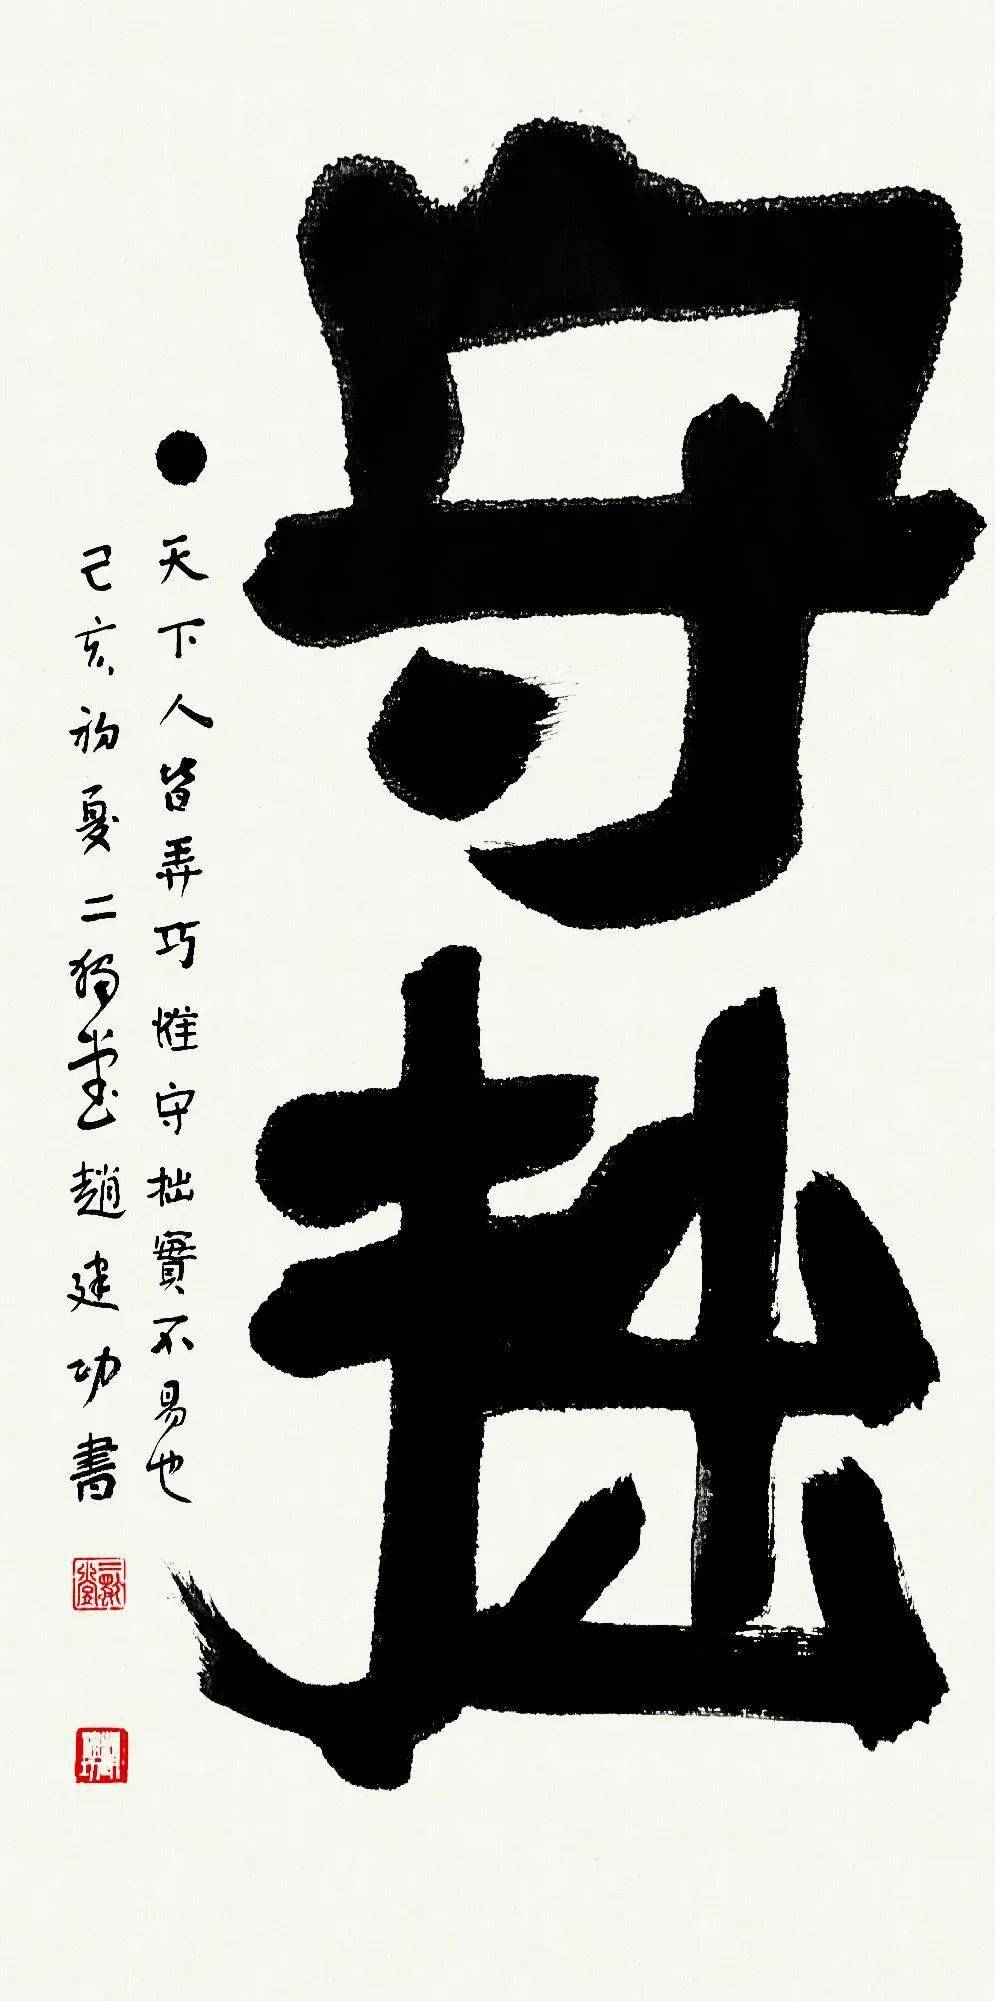 守拙
天下人皆弄巧惟守拙實不易也
己亥初夏二獨堂趙建功書
二獨堂